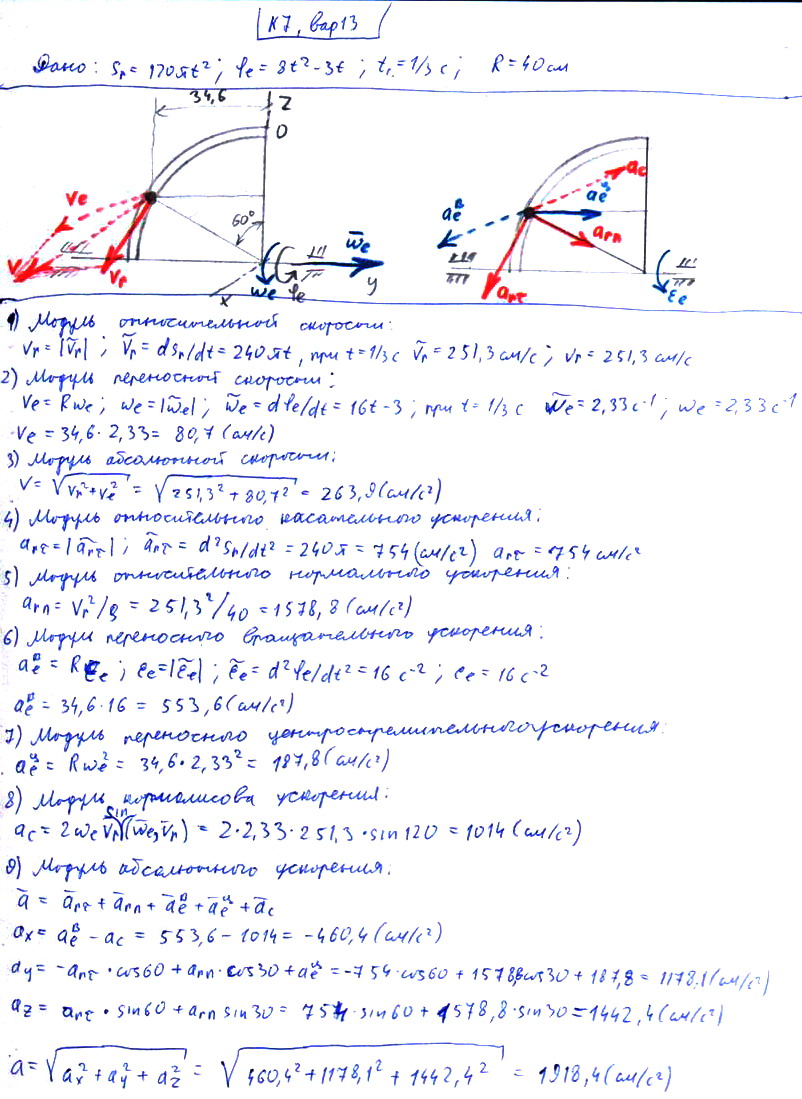 К7, вар13
Дано: Sr = 120πt²; φe = 8t² - 3t; t₁ = 1/3 c; R = 40 см
34,6
Z
O
60°
ve
v
vr
ω̄e
ωe
φe
x
y
ac
aeᴮ
aeᶣ
arn
arτ
εe
1) Модуль относительной скорости:
vr = |ṽr|; ṽr = dSr/dt = 240πt, при t = 1/3 c ṽr = 251,3 см/с; vr = 251,3 см/с
2) Модуль переносной скорости:
ve = Rωe; ωe = |ω̃e|; ω̃e = dφe/dt = 16t - 3; при t = 1/3 c ω̃e = 2,33 c⁻¹; ωe = 2,33 c⁻¹
ve = 34,6 · 2,33 = 80,7 (см/с)
3) Модуль абсолютной скорости:
v = √(vr² + ve²) = √(251,3² + 80,7²) = 263,9 (см/с²)
4) Модуль относительного касательного ускорения:
arτ = |ãrτ|; ãrτ = d²Sr/dt² = 240π = 754 (см/с²) arτ = 754 см/с²
5) Модуль относительного нормального ускорения:
arn = vr²/ρ = 251,3²/40 = 1578,8 (см/с²)
6) Модуль переносного вращательного ускорения:
aeᴮ = Rεe; εe = |ε̃e|; ε̃e = d²φe/dt² = 16 c⁻²; εe = 16 c⁻²
aeᴮ = 34,6 · 16 = 553,6 (см/с²)
7) Модуль переносного центростремительного ускорения:
aeᶣ = Rωe² = 34,6 · 2,33² = 187,8 (см/с²)
8) Модуль кориолисова ускорения:
ac = 2ωe vr sin(ω̄e, v̄r) = 2 · 2,33 · 251,3 · sin120 = 1014 (см/с²)
9) Модуль абсолютного ускорения:
ā = ārτ + ārn + āeᴮ + āeᶣ + āc
ax = aeᴮ - ac = 553,6 - 1014 = -460,4 (см/с²)
ay = -arτ · cos60 + arn · cos30 + aeᶣ = -754 · cos60 + 1578,8cos30 + 187,8 = 1178,1 (см/с²)
az = arτ · sin60 + arn sin30 = 754 · sin60 + 1578,8 · sin30 = 1442,4 (см/с²)
a = √(ax² + ay² + az²) = √(460,4² + 1178,1² + 1442,4²) = 1918,4 (см/с²)